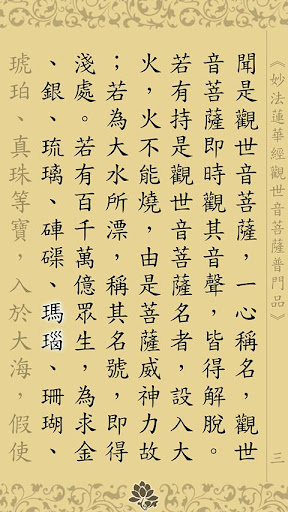 《妙法蓮華經觀世音菩薩普門品》
三
聞是觀世音菩薩，一心稱名，觀世
音菩薩即時觀其音聲，皆得解脫。
若有持是觀世音菩薩名者，設入大
火，火不能燒，由是菩薩威神力故
；若為大水所漂，稱其名號，即得
淺處。若有百千萬億眾生，為求金
、銀、琉璃、硨磲、瑪瑙、珊瑚、
琥珀、真珠等寶，入於大海，假使